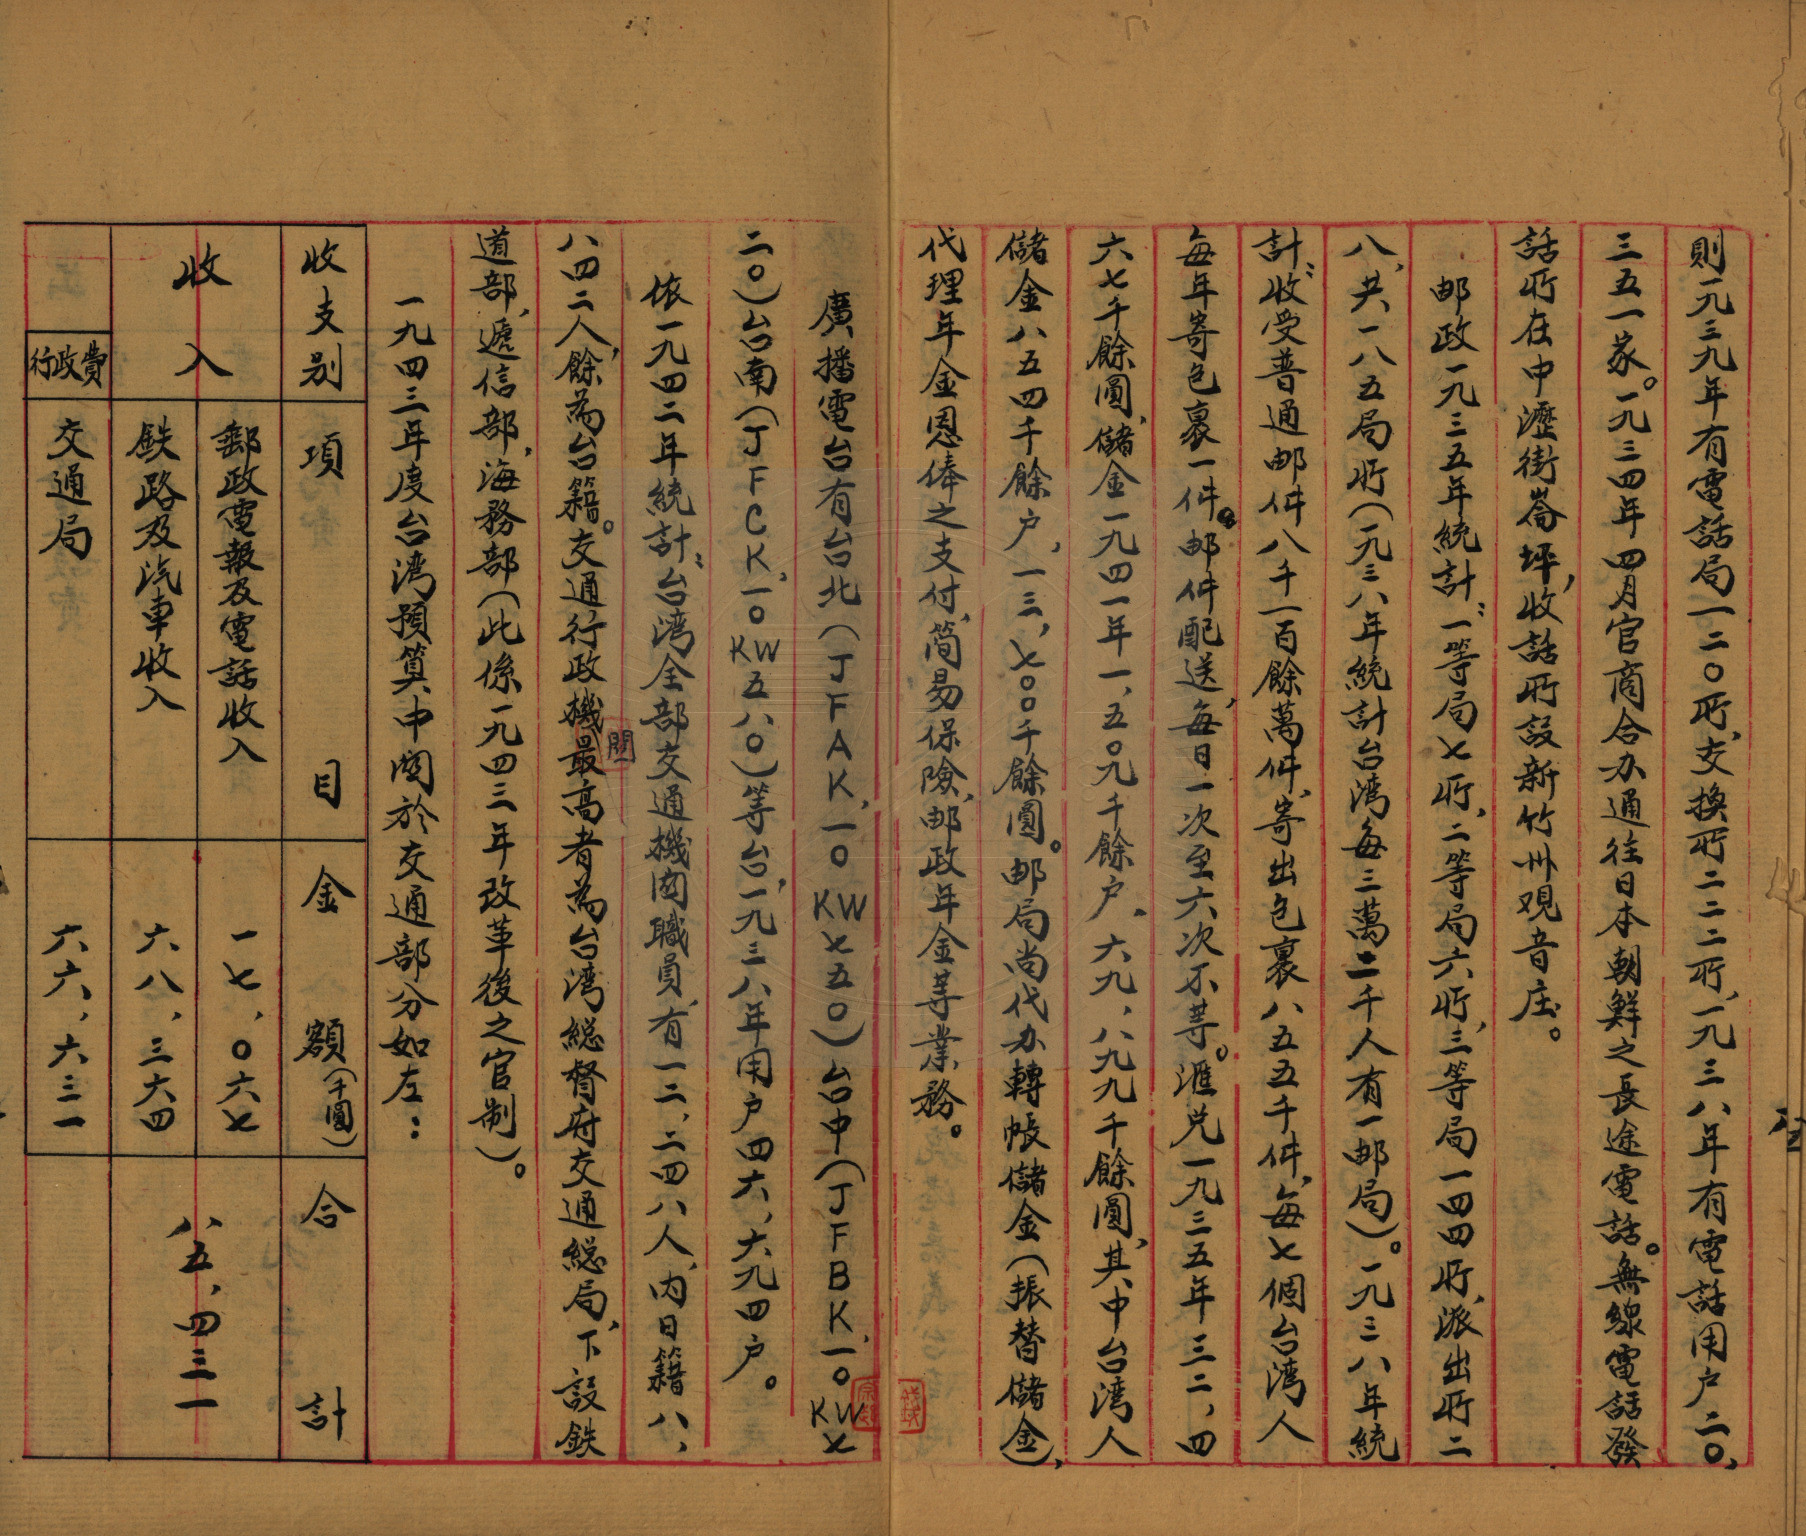 則一九三九年有電話局一二〇所，交換所二二二所，一九三八年有電話用户二〇，
三五一家。一九三四年四月官商合办通往日本朝鮮之長途電話。無線電話發
話所在中瀝街崙坪，收話所設新竹州观音庄。
邮政一九三五年統計：一等局七所，二等局六所，三等局一四四所，派出所二
八，共一八五局所（一九三八年統計台湾每三萬二千人有一邮局）。一九三八年統
計：收受普通邮件八千一百餘萬件，寄出包裹八五五千件，每七個台湾人
每年寄包裹一件。邮件配送，每日一次至六次不等。滙兑一九三五年三二，四
六七千餘圓，儲金一九四一年一，五〇九千餘户，六九，八九九千餘圓，其中台湾人
儲金八五四千餘户，一三，七〇〇千餘圓。邮局尚代办轉帳儲金（振替儲金），
代理年金恩俸之支付，简易保險，邮政年金等業務。
廣播電台有台北（JFAK，一〇KW七五〇）台中（JFBK，一〇KW七
二〇）台南（JFCK，一〇KW五八〇）等台，一九三八年用户四六，六九四户。
依一九四二年統計：台湾全部交通機関職員，有一二，二四八人，内日籍八，
八四二人，餘為台籍。交通行政機関最高者為台湾総督府交通総局，下設鉄
道部，遞信部，海務部（此係一九四三年改革後之官制）。
一九四三年度台湾預算中関於交通部分如左：
收支别 項目 金額（千圓） 合計
收入 郵政電報及電話收入 一七，〇六七 八五，四三一
鉄路及汽車收入 六八，三六四
行政費 交通局 六六，六三一